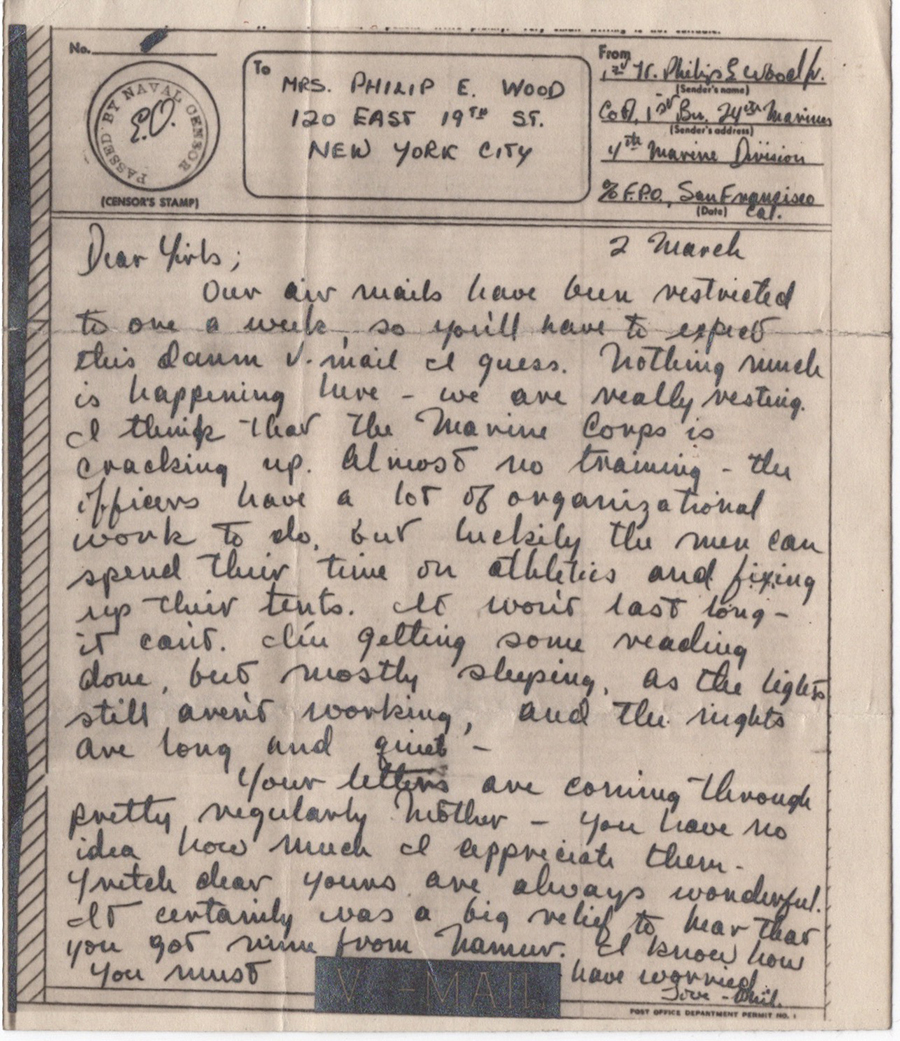 No.
PASSED BY NAVAL CENSOR
E.O.
(CENSOR'S STAMP)
To
MRS. PHILIP E. WOOD
120 EAST 19TH ST.
NEW YORK CITY
From
1st Lt. Philip E Wood Jr.
(Sender's name)
Co A, 1st Bn. 24th Marines
(Sender's address)
4th Marine Division
% F.P.O., San Francisco
(Date) Cal.
2 March
Dear Girls;
Our air mails have been restricted
to one a week, so you'll have to expect
this damn V-mail I guess. Nothing much
is happening here - we are really resting.
I think that the Marine Corps is
cracking up. Almost no training - the
officers have a lot of organizational
work to do, but luckily the men can
spend their time on athletics and fixing
up their tents. It won't last long -
it can't. I'm getting some reading
done, but mostly sleeping, as the lights
still aren't working, and the nights
are long and quiet -
Your letters are coming through
pretty regularly Mother - you have no
idea how much I appreciate them.
Gretch dear yours are always wonderful.
It certainly was a big relief to hear that
you got mine from Namur. I know how
you must have worried.
Love - Phil.
V···-MAIL
POST OFFICE DEPARTMENT PERMIT NO. 1